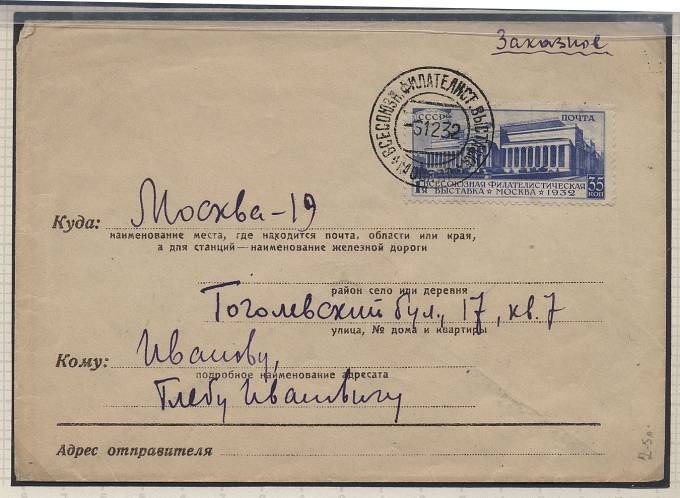 Заказное
ВСЕСОЮЗН. ФИЛАТЕЛИСТ. ВЫСТАВКА
5 12 32
СССР
ПОЧТА
ВСЕСОЮЗНАЯ ФИЛАТЕЛИСТИЧЕСКАЯ
ВЫСТАВКА ★ МОСКВА ★ 1932
35
КОП
Куда: Москва-19
наименование места, где находится почта, области или края,
а для станций—наименование железной дороги
район село или деревня
Гоголевский бул., 17, кв. 7
улица, № дома и квартиры
Кому: Иванову,
подробное наименование адресата
Глебу Ивановичу
Адрес отправителя